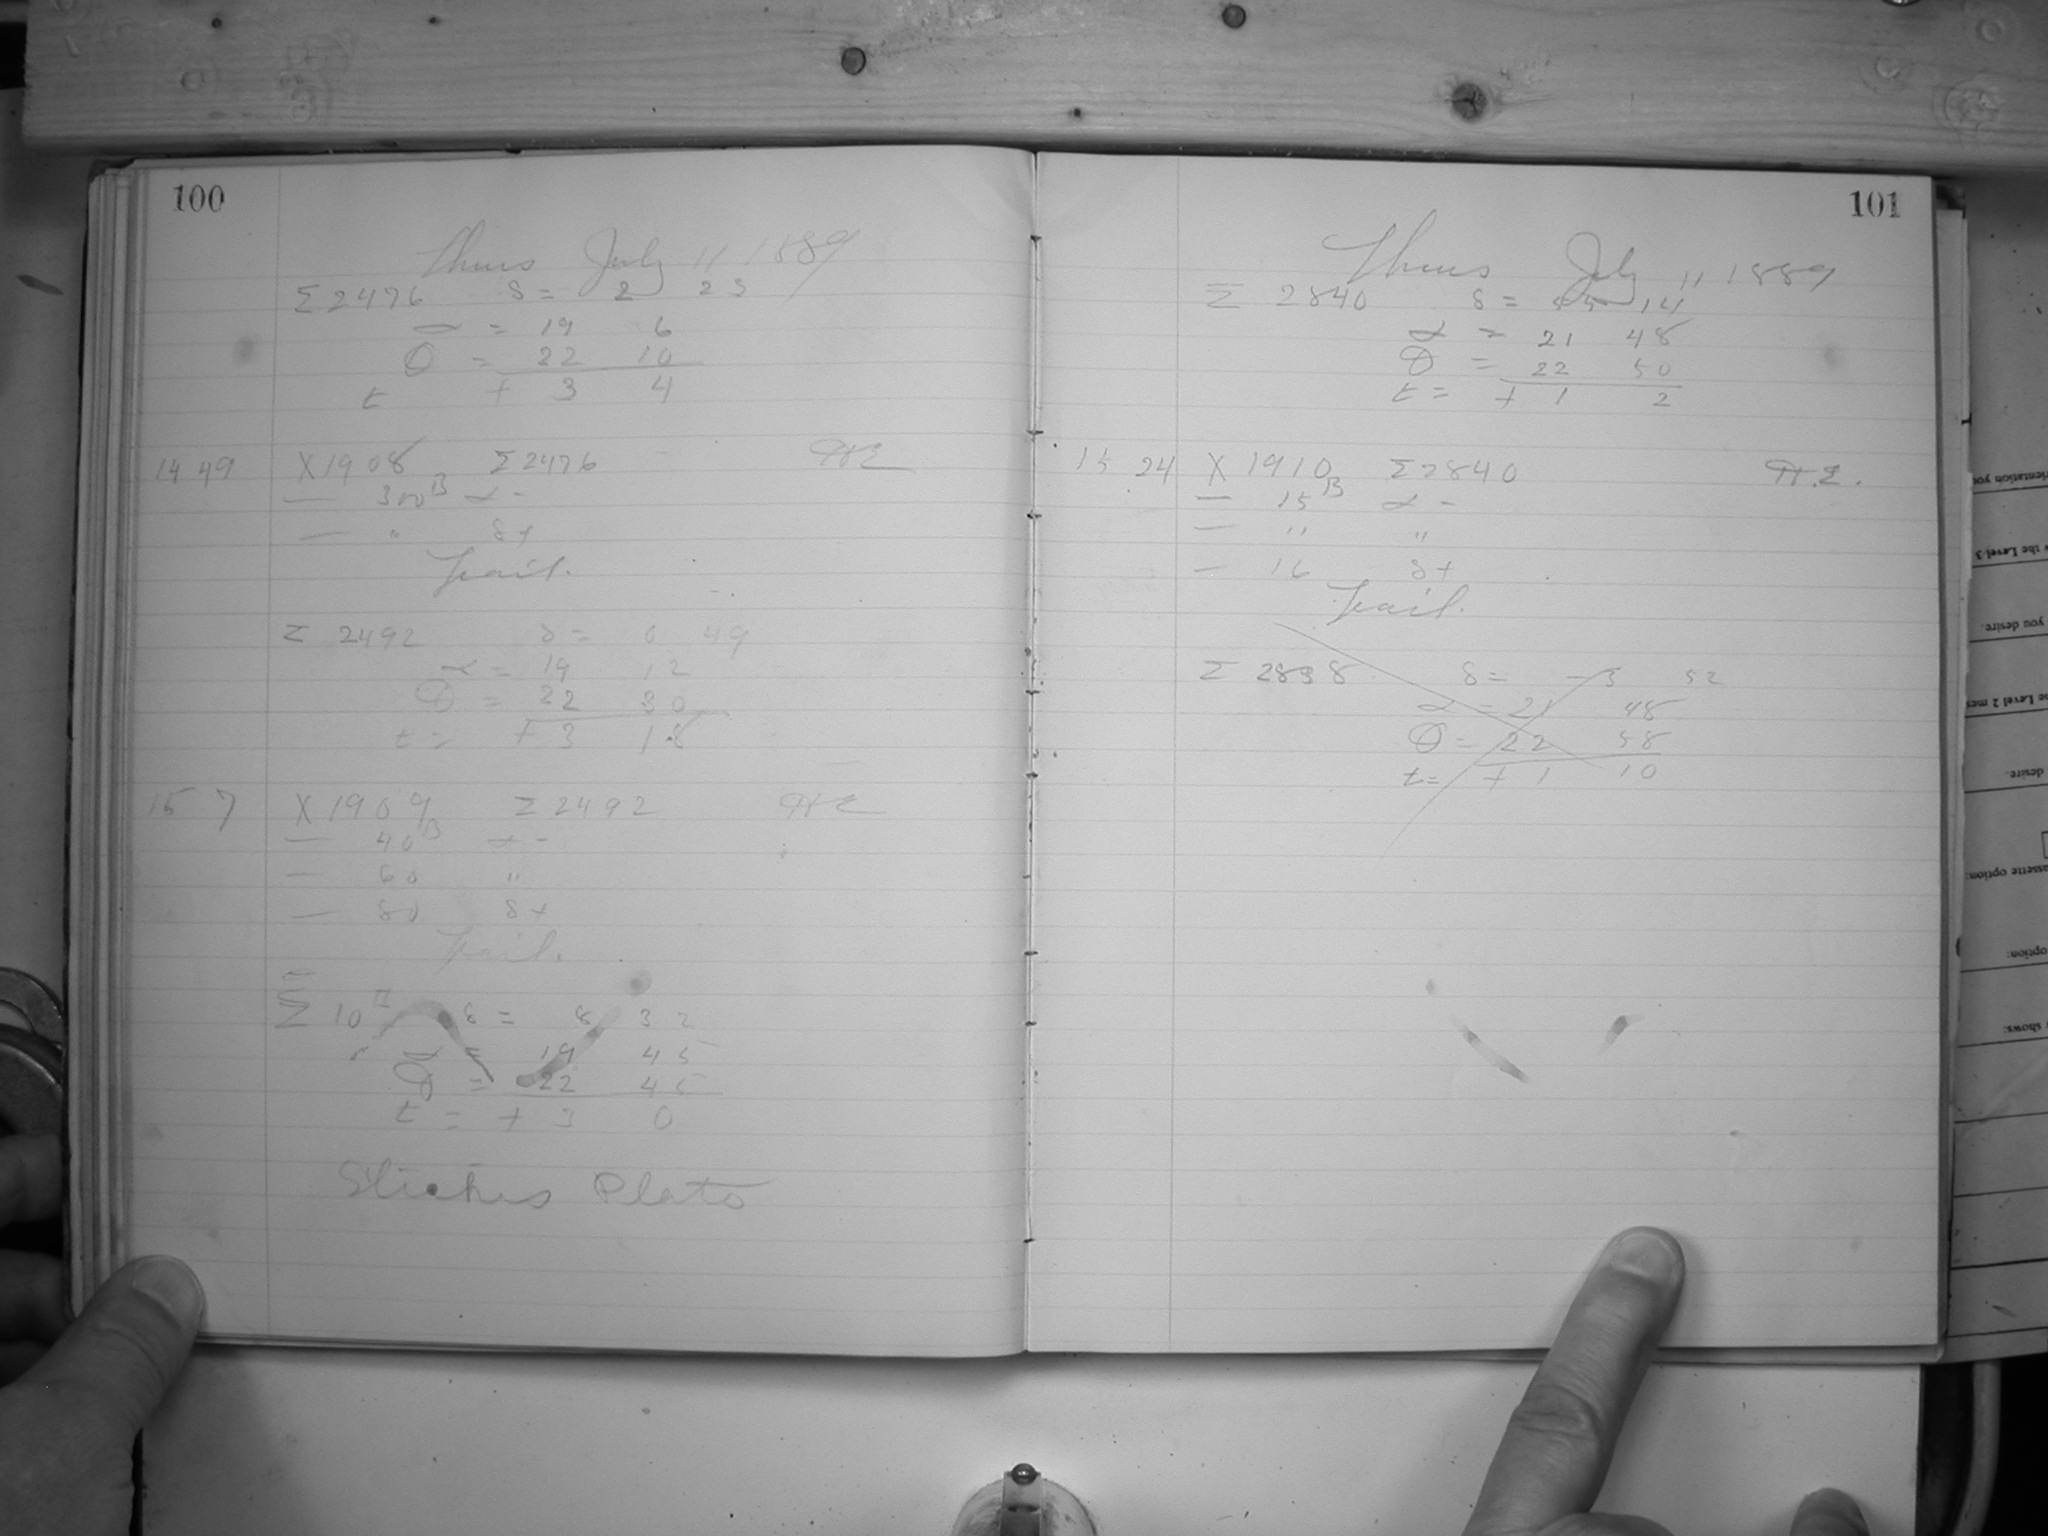 100
Thurs July 11 1889
Σ 2476 δ = 2 23
α = 19 6
θ = 22 10
t + 3 4
14 49 X 1908 Σ 2476 HE
— 300 B α -
— " δ +
Trail.
Σ 2492 δ = 0 49
α = 19 12
θ = 22 30
t = + 3 18
15 7 X 1909 Σ 2492 HE
— 40 B α -
— 60 "
— 80 δ +
Trail.
Σ 10 δ = 8 32
α = 19 45
θ = 22 45
t = + 3 0
Plate
101
Thurs July 11 1889
Σ 2840 δ = 55 14
α = 21 48
θ = 22 50
t = + 1 2
15 24 X 1910 Σ 2840 H.E.
— 15 B α -
— " "
— 16 δ +
Trail.
Σ 2838 δ = - 3 52
α = 21 48
θ = 22 58
t = + 1 10
desire.
option:
shows: